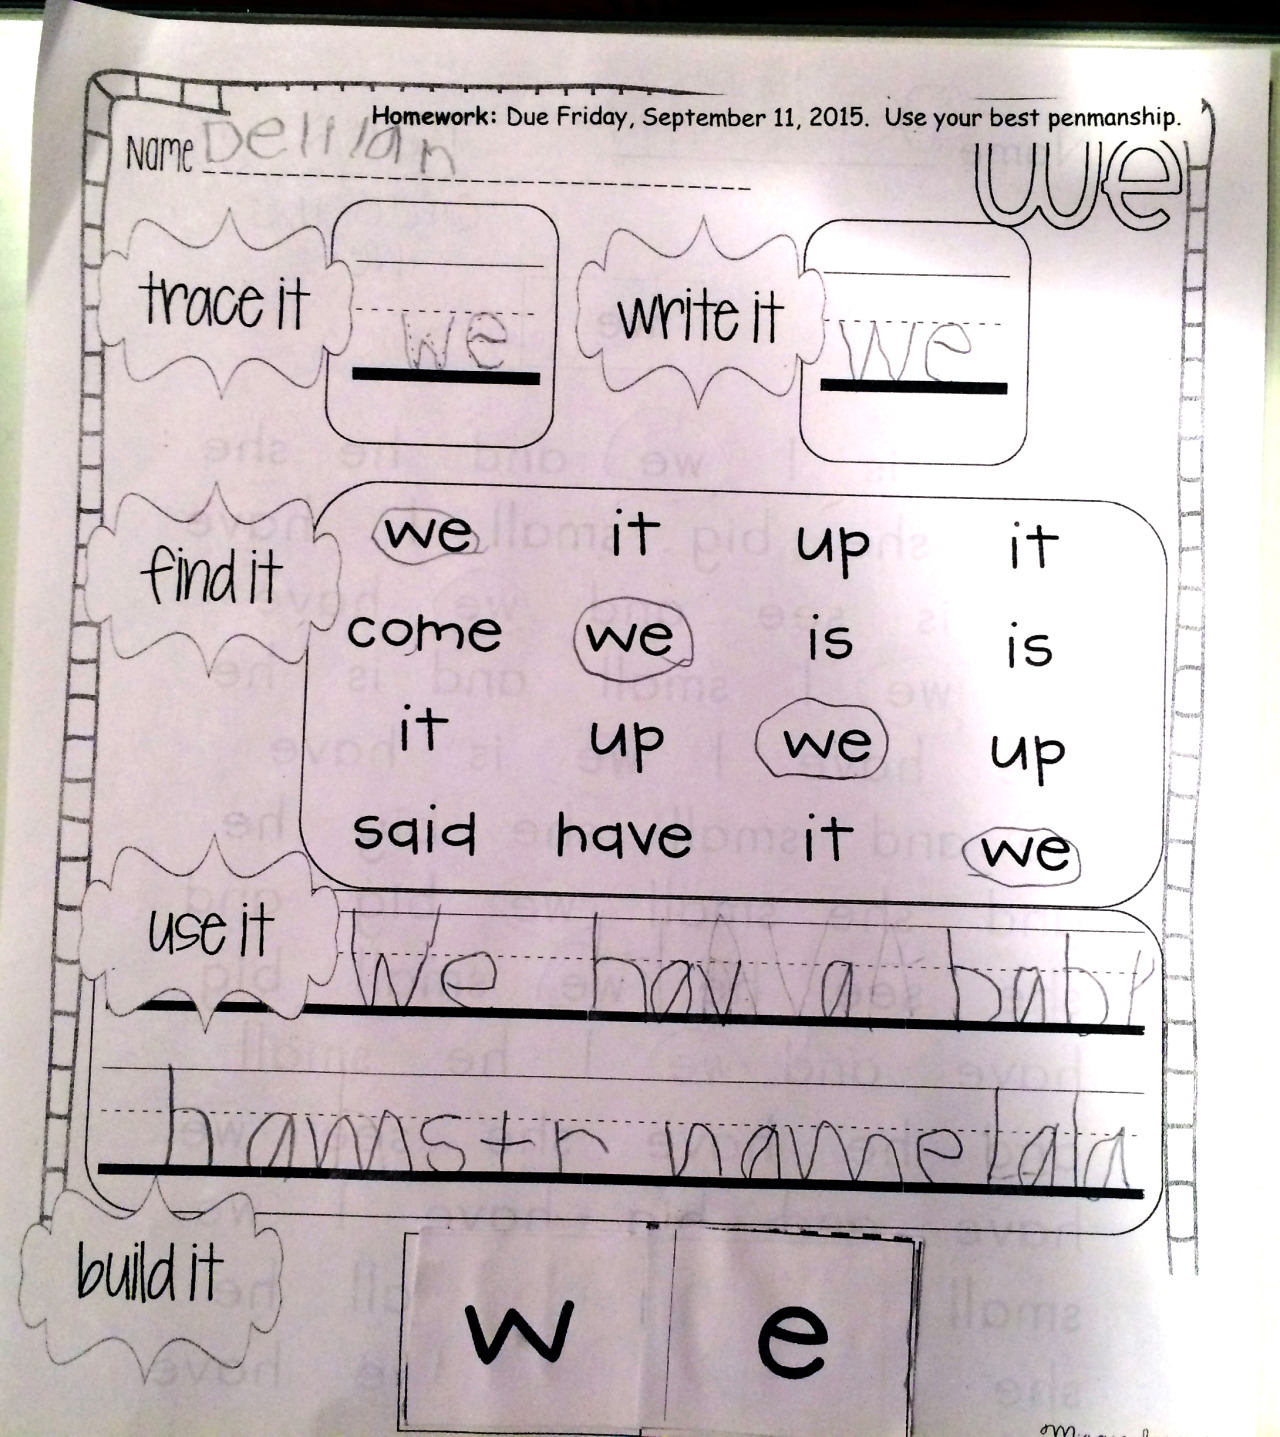 Homework: Due Friday, September 11, 2015. Use your best penmanship.
Name Delilah
we
trace it we write it we
find it
we it up it
come we is is
it up we up
said have it we
use it We hav a baby
hamstr name lala
build it
w e